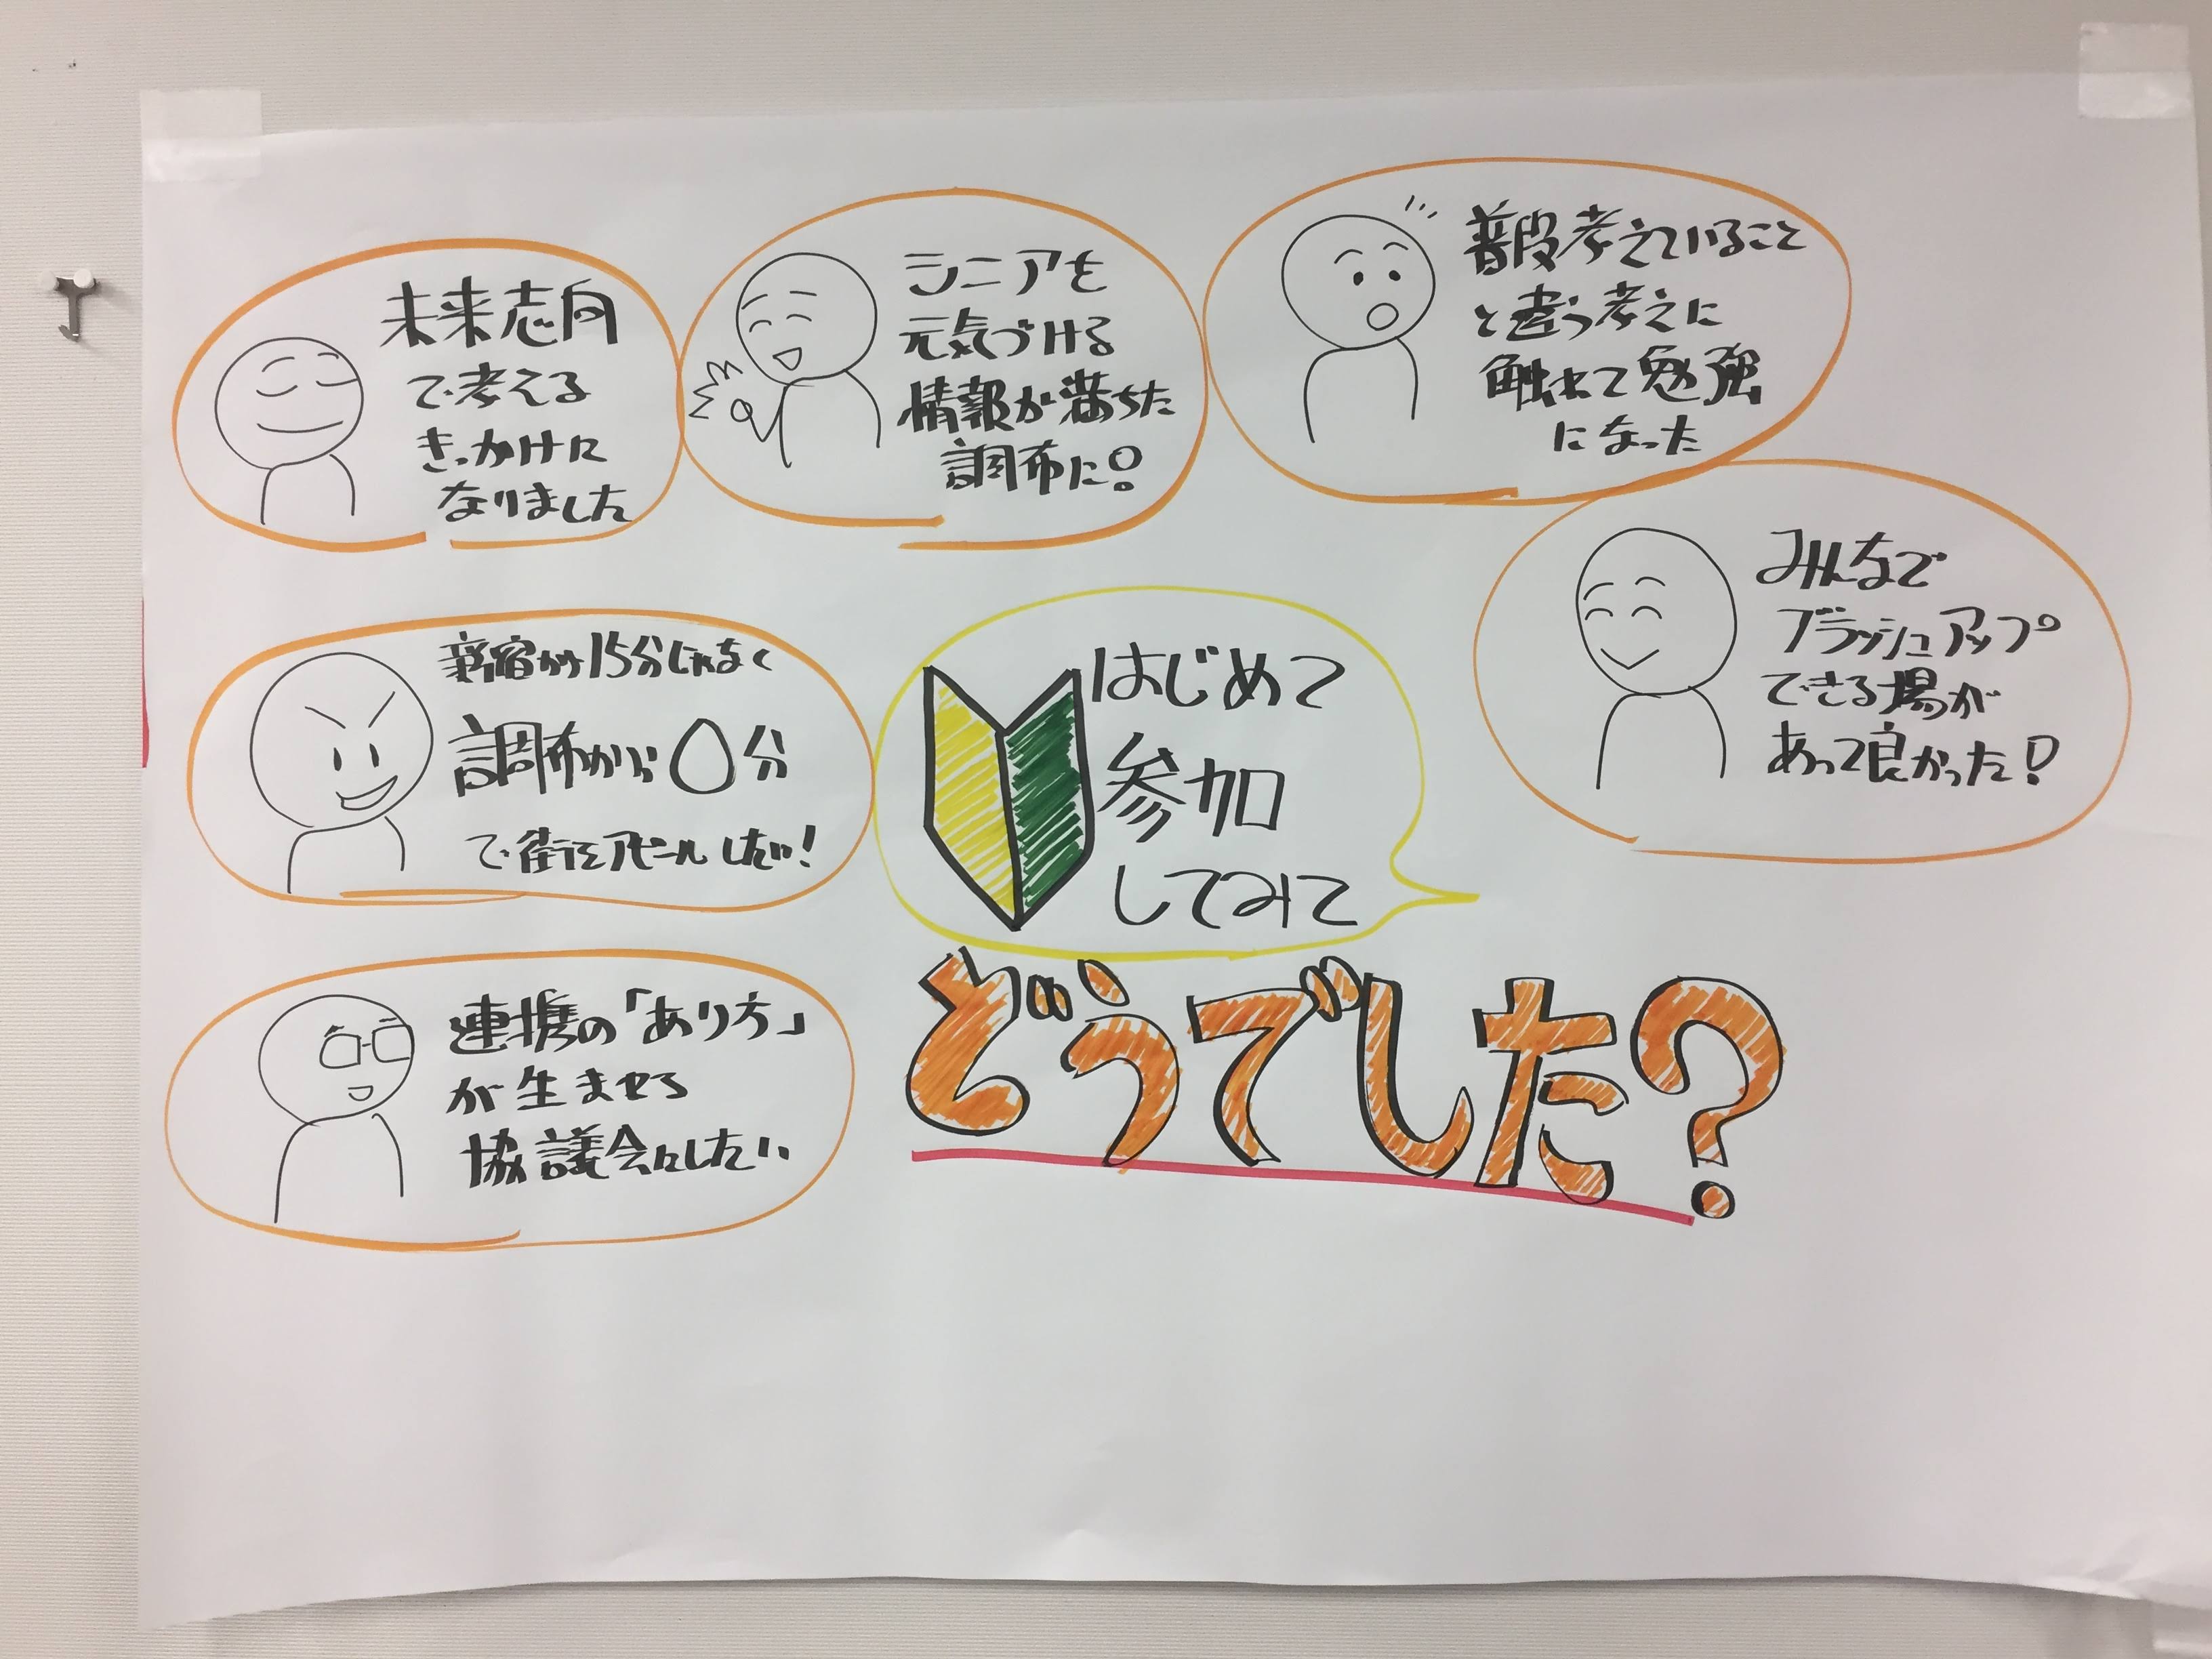 未来志向
で考える
きっかけに
なりました
シニアを
元気づける
情報が満ちた
調布に!
普段考えていること
と違う考えに
触れて勉強
になった
みんなで
ブラッシュアップ
できる場が
あって良かった!
新宿から15分じゃなく
調布から〇分
で街をアピールしたい!
はじめて
参加
してみて
どうでした?
連携の「あり方」
が生ませる
協議会にしたい